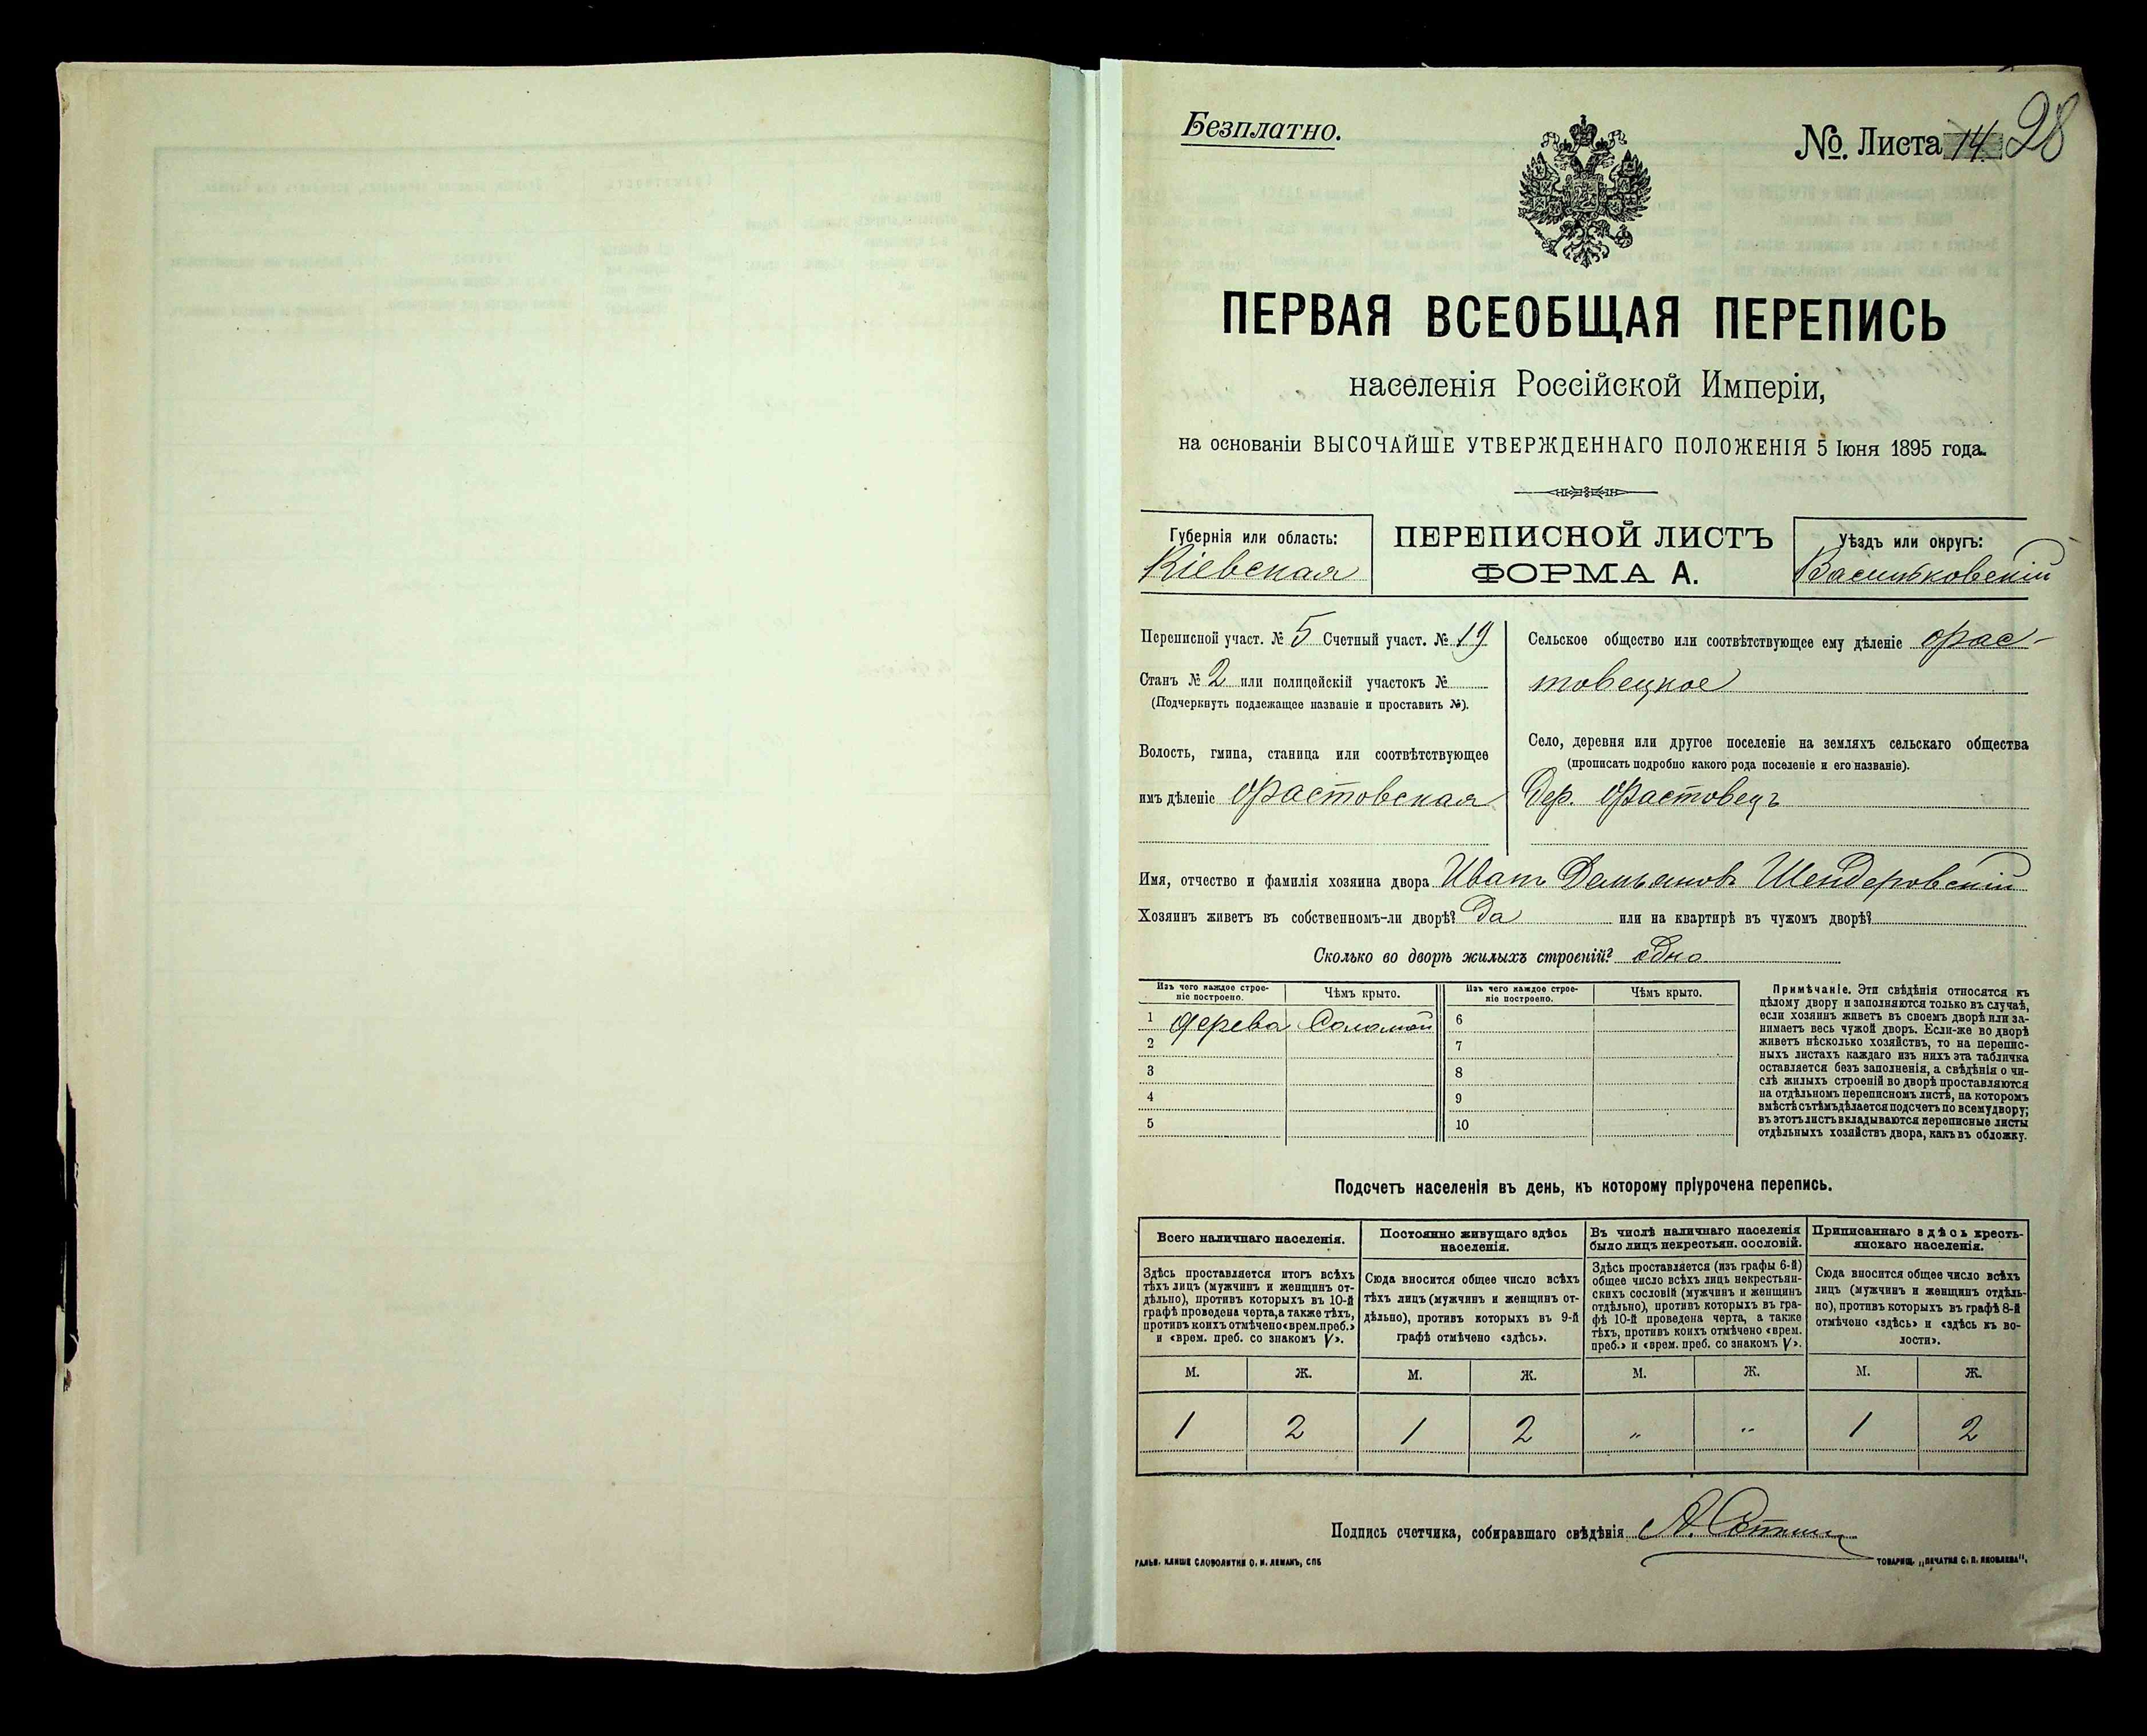 Безплатно.
№ Листа 14 28
ПЕРВАЯ ВСЕОБЩАЯ ПЕРЕПИСЬ
населенія Россійской Имперіи,
на основаніи ВЫСОЧАЙШЕ УТВЕРЖДЕННАГО ПОЛОЖЕНІЯ 5 Іюня 1895 года.
Губернія или область:
Кіевская
ПЕРЕПИСНОЙ ЛИСТЪ
ФОРМА А.
Уѣздъ или округъ:
Васильковскій
Переписной участ. № 5 Счетный участ. № 19
Станъ № 2 или полицейскій участокъ №
(Подчеркнуть подлежащее названіе и проставить №).
Волость, гмина, станица или соотвѣтствующее
имъ дѣленіе Фастовская
Сельское общество или соотвѣтствующее ему дѣленіе Фас-
товецкое
Село, деревня или другое поселеніе на земляхъ сельскаго общества
(прописать подробно какого рода поселеніе и его названіе).
Дер. Фастовецъ
Имя, отчество и фамилія хозяина двора Иванъ Демьяновъ Шендеровскій
Хозяинъ живетъ въ собственномъ-ли дворѣ? Да или на квартирѣ въ чужомъ дворѣ?
Сколько во дворѣ жилыхъ строеній? одно
Изъ чего каждое строе-
ніе построено.
Чѣмъ крыто.
Изъ чего каждое строе-
ніе построено.
Чѣмъ крыто.
1 дерева Соломой 6
2 7
3 8
4 9
5 10
Примѣчаніе. Эти свѣдѣнія относятся къ
цѣлому двору и заполняются только въ случаѣ,
если хозяинъ живетъ въ своемъ дворѣ или за-
нимаетъ весь чужой дворъ. Если-же во дворѣ
живетъ нѣсколько хозяйствъ, то на перепис-
ныхъ листахъ каждаго изъ нихъ эта табличка
оставляется безъ заполненія, а свѣдѣнія о чи-
слѣ жилыхъ строеній во дворѣ проставляются
на отдѣльномъ переписномъ листѣ, на которомъ
вмѣстѣ съ тѣмъ дѣлается подсчетъ по всему двору;
въ этотъ листъ вкладываются переписные листы
отдѣльныхъ хозяйствъ двора, какъ въ обложку.
Подсчетъ населенія въ день, къ которому пріурочена перепись.
Всего наличнаго населенія.
Здѣсь проставляется итогъ всѣхъ
тѣхъ лицъ (мужчинъ и женщинъ от-
дѣльно), противъ которыхъ въ 10-й
графѣ проведена черта, а также тѣхъ,
противъ коихъ отмѣчено «врем. преб.»
и «врем. преб. со знакомъ V».
Постоянно живущаго здѣсь
населенія.
Сюда вносится общее число всѣхъ
тѣхъ лицъ (мужчинъ и женщинъ от-
дѣльно), противъ которыхъ въ 9-й
графѣ отмѣчено «здѣсь».
Въ числѣ наличнаго населенія
было лицъ некрестьян. сословій.
Здѣсь проставляется (изъ графы 6-й)
общее число всѣхъ лицъ некрестьян-
скихъ сословій (мужчинъ и женщинъ
отдѣльно), противъ которыхъ въ гра-
фѣ 10-й проведена черта, а также
тѣхъ, противъ коихъ отмѣчено «врем.
преб.» и «врем. преб. со знакомъ V».
Приписаннаго здѣсь кресть-
янскаго населенія.
Сюда вносится общее число всѣхъ
лицъ (мужчинъ и женщинъ отдѣль-
но), противъ которыхъ въ графѣ 8-й
отмѣчено «здѣсь» и «здѣсь къ во-
лости».
М. Ж. М. Ж. М. Ж. М. Ж.
1 2 1 2 " " 1 2
Подпись счетчика, собиравшаго свѣдѣнія
ГАЛЬВ. КЛИШЕ СЛОВОЛИТНИ О. И. ЛЕМАНЪ, СПБ
ТОВАРИЩ. „ПЕЧАТНЯ С. П. ЯКОВЛЕВА".